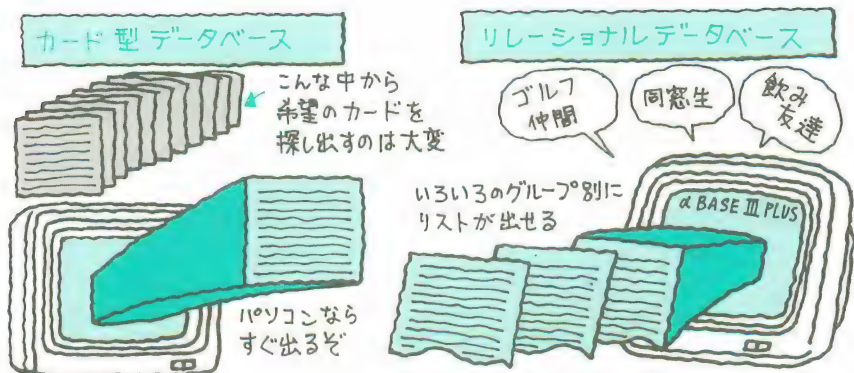 カード型データベース
こんな中から
希望のカードを
探し出すのは大変
パソコンなら
すぐ出るぞ
リレーショナルデータベース
ゴルフ
仲間
同窓生
飲み
友達
いろいろのグループ別に
リストが出せる
α BASE III PLUS